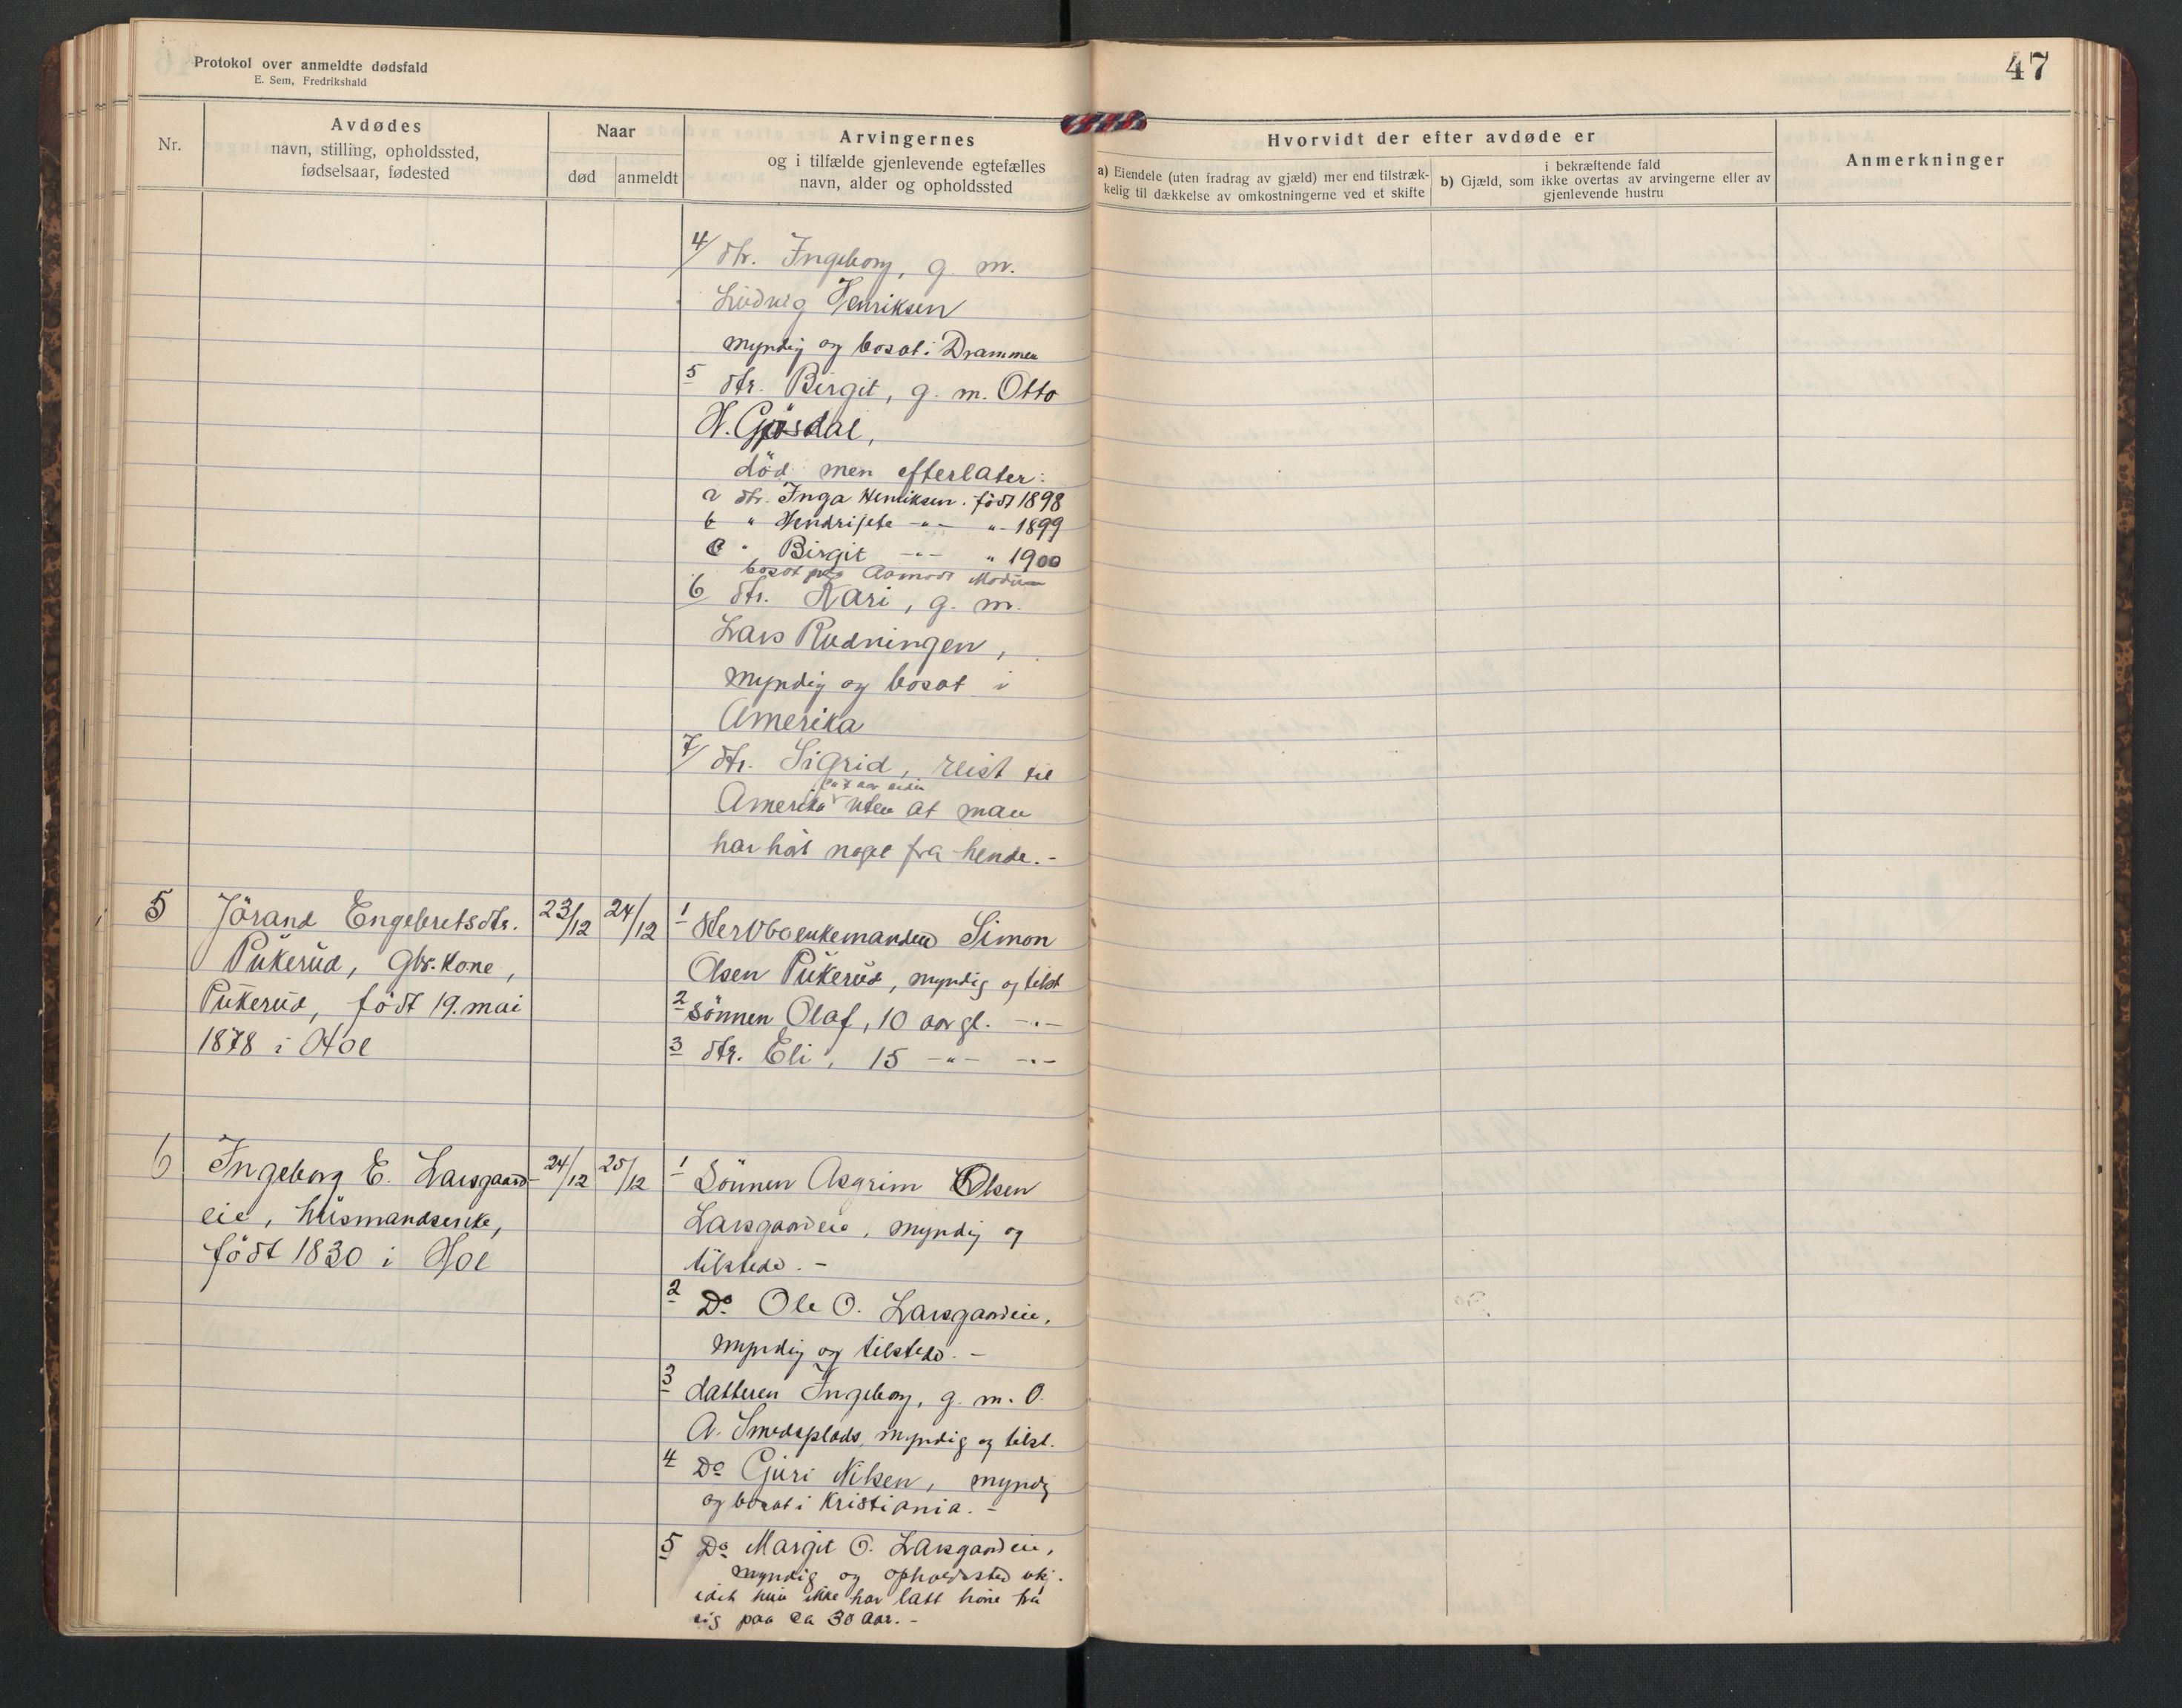 Protokol over anmeldte dødsfald
E. Sem, Fredrikshald
47
Nr.
Avdødes
navn, stilling, opholdssted,
fødselsaar, fødested
Naar
død
anmeldt
Arvingernes
og i tilfælde gjenlevende egtefælles
navn, alder og opholdssted
Hvorvidt der efter avdøde er
a) Eiendele (uten fradrag av gjæld) mer end tilstræk-
kelig til dækkelse av omkostningerne ved et skifte
i bekræftende fald
b) Gjæld, som ikke overtas av arvingerne eller av
gjenlevende hustru
Anmerkninger
4/ dtr. Ingeborg, g. m.
Ludvig Henriksen
myndig og bosat i Drammen
5 dtr. Birgit, g. m. Otto
H. Gjösdal,
död men efterlater:
a dtr. Inga Henriksen. født 1898
b " Hendrijete -"- "- 1899
c " Birgit -"- " 1900
bosat paa Aamodt Modum
6/ dtr. Kari, g. m.
Lars Rudningen,
myndig og bosat i
Amerika
7/ dtr. Sigrid, reist til
Amerika uten at man
har hört noget fra hende. -
5
Jörand Engebretsdtr.
Pukerud, Gbr. Kone,
Pukerud, født 19. mai
1878 i Hol
23/12
24/12
1 Stervboenkemanden Simon
Olsen Pukerud, myndig og tilst
2 Sönnen Olaf, 10 aar gl. -"-
3 dtr. Eli, 15 -"- -"-
6
Ingeborg E. Larsgaard-
eie, husmandsenke,
født 1830 i Hol
24/12
25/12
1 Sönnen Asgrim Olsen
Larsgaardeie, myndig og
tilstede. -
2 Do Ole O. Larsgaardeie,
myndig og tilstede. -
3 datteren Ingeborg, g. m. O.
A. Smedsplads, myndig og tilst.
4 Do Guri Nilsen, myndig
og bosat i Kristiania. -
5 Do Margit O. Larsgaardeie,
myndig og opholdssted ukj.
idet hun ikke har latt höre fra
sig paa ca 30 aar. -